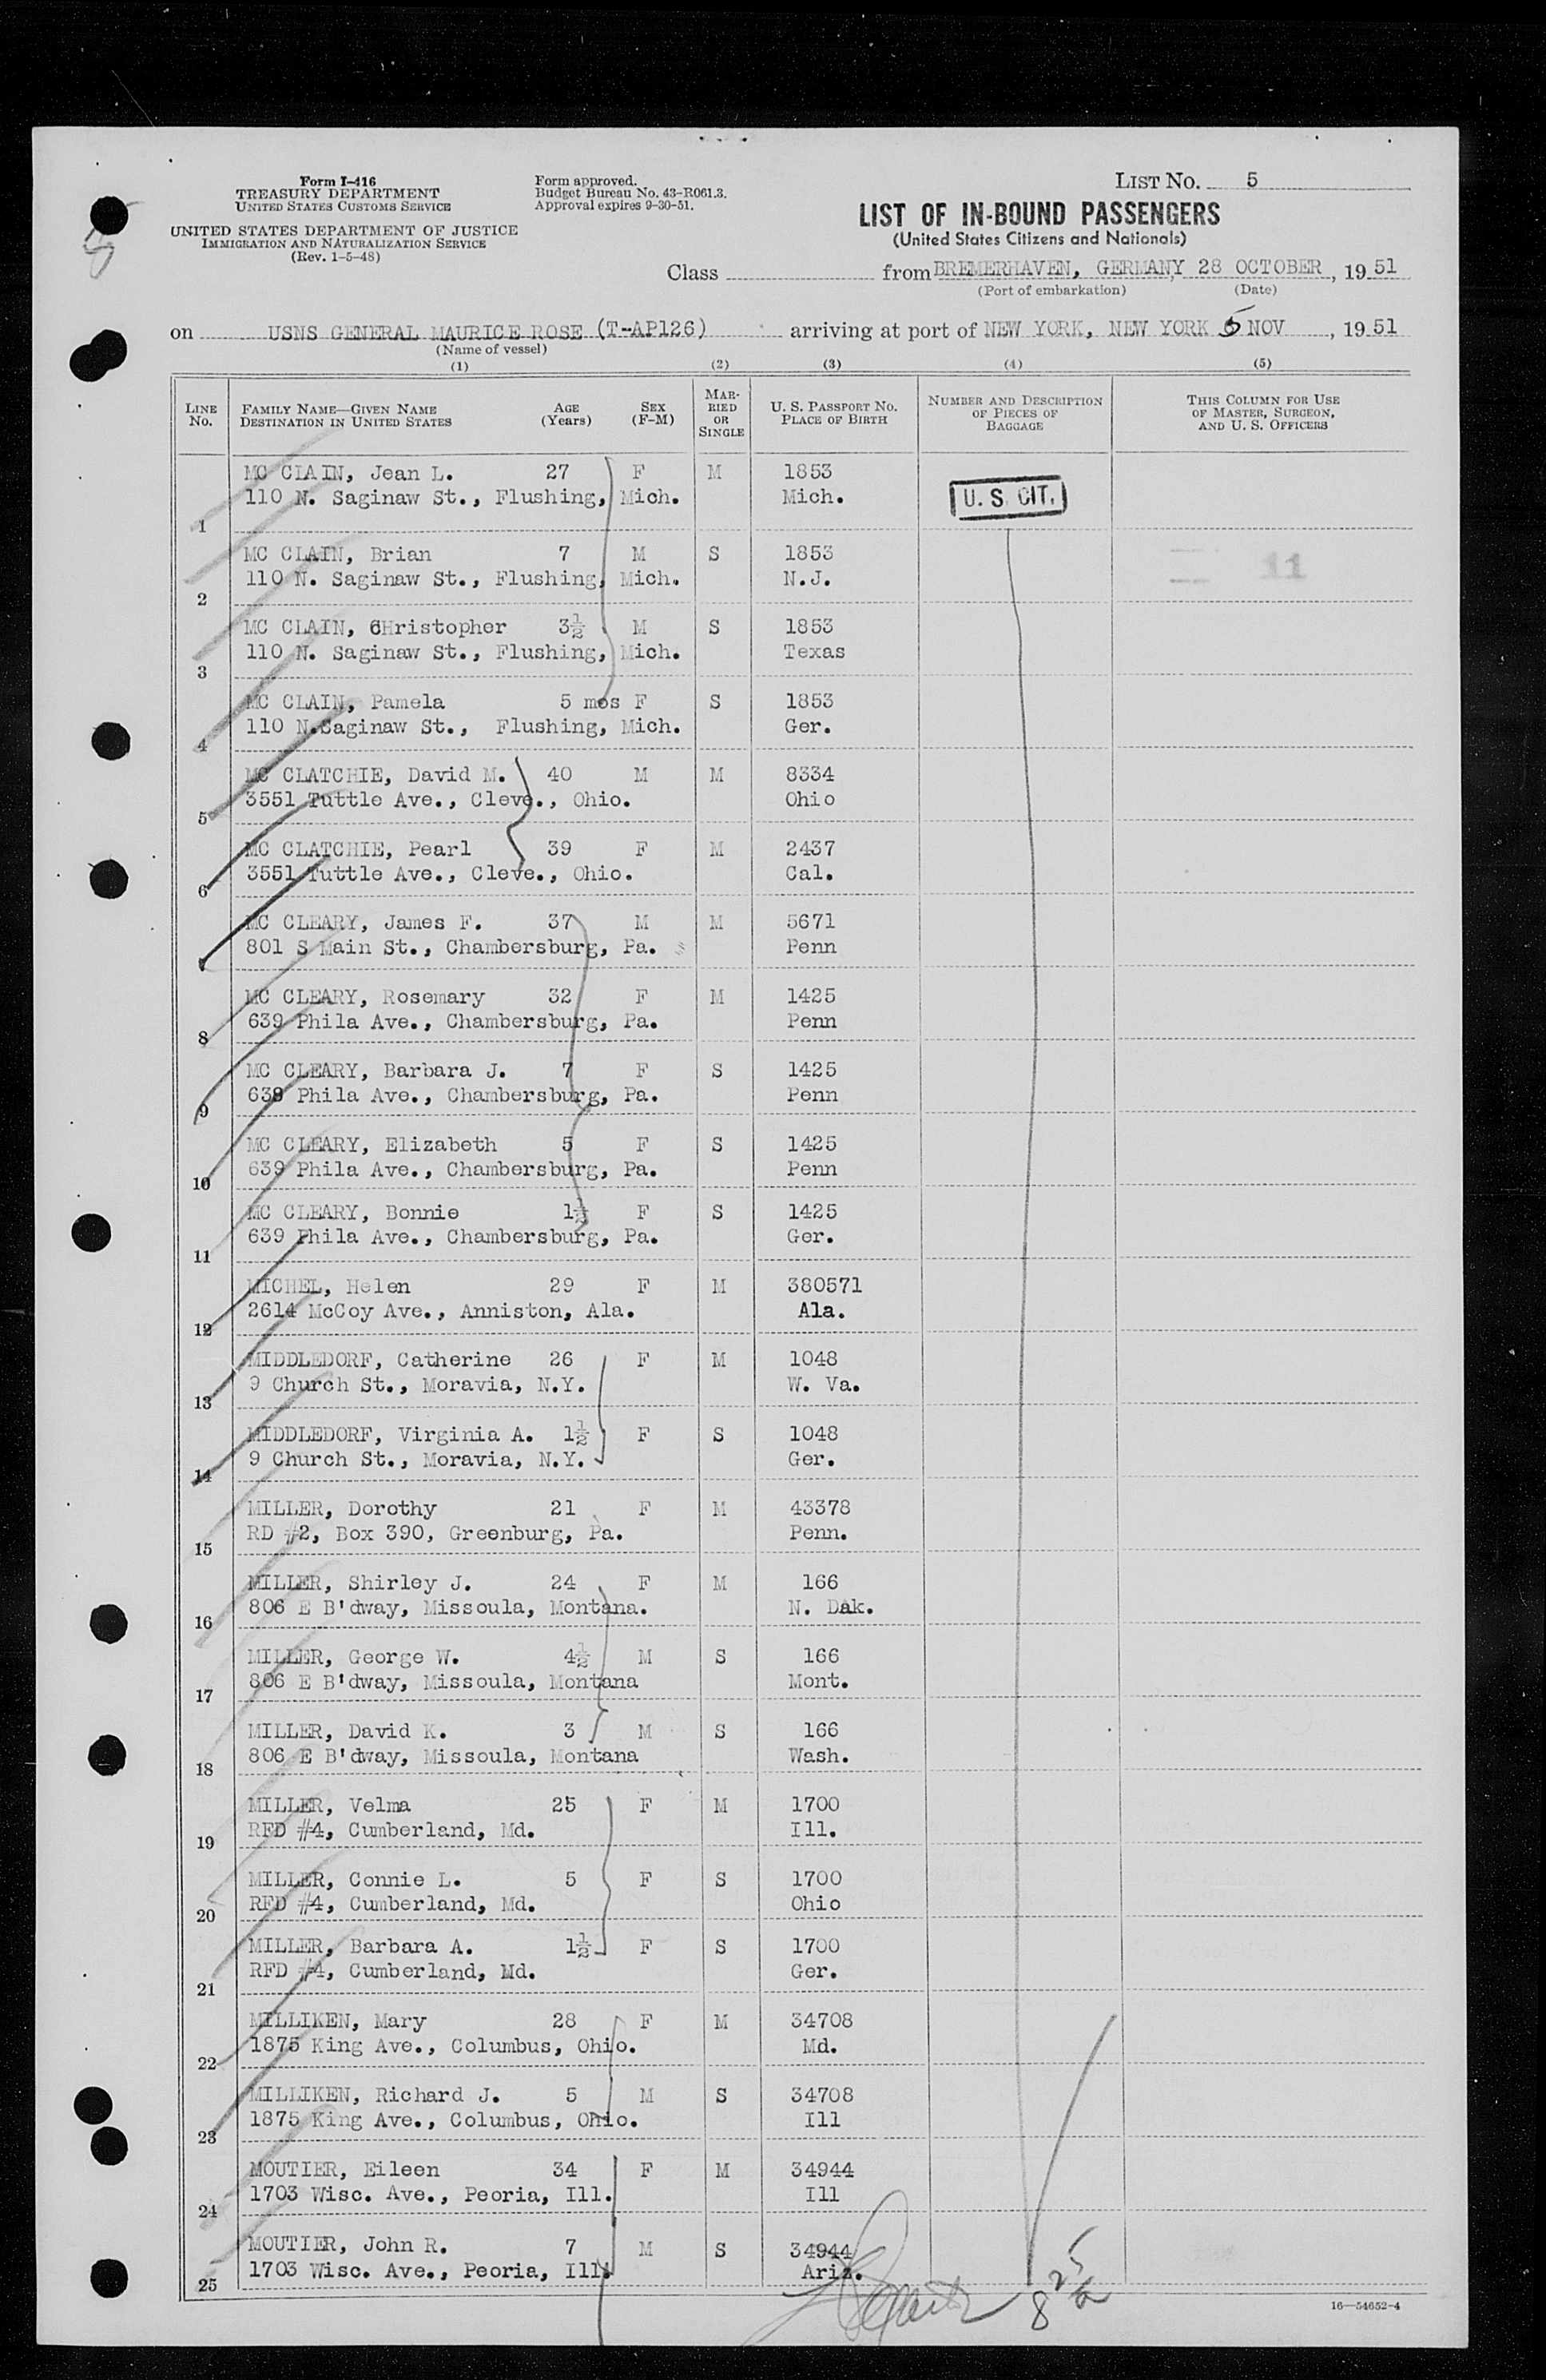 Form I-416
TREASURY DEPARTMENT
UNITED STATES CUSTOMS SERVICE
UNITED STATES DEPARTMENT OF JUSTICE
IMMIGRATION AND NATURALIZATION SERVICE
(Rev. 1-5-48)
Form approved.
Budget Bureau No. 43-R061.3.
Approval expires 9-30-51.
LIST No. 5
LIST OF IN-BOUND PASSENGERS
(United States Citizens and Nationals)
Class from BREMERHAVEN, GERMANY 28 OCTOBER, 1951
(Port of embarkation) (Date)
on USNS GENERAL MAURICE ROSE (T-AP126) arriving at port of NEW YORK, NEW YORK 5 NOV, 1951
(Name of vessel)
(1) (2) (3) (4) (5)
LINE No. FAMILY NAME—GIVEN NAME DESTINATION IN UNITED STATES AGE (Years) SEX (F-M) MARRIED OR SINGLE U. S. PASSPORT No. PLACE OF BIRTH NUMBER AND DESCRIPTION OF PIECES OF BAGGAGE THIS COLUMN FOR USE OF MASTER, SURGEON, AND U. S. OFFICERS
MC CLAIN, Jean L. 27 F M 1853
1 110 N. Saginaw St., Flushing, Mich. Mich. U. S. CIT.
MC CLAIN, Brian 7 M S 1853
2 110 N. Saginaw St., Flushing, Mich. N.J. 11
MC CLAIN, CHristopher 3½ M S 1853
3 110 N. Saginaw St., Flushing, Mich. Texas
MC CLAIN, Pamela 5 mos F S 1853
4 110 N.Saginaw St., Flushing, Mich. Ger.
MC CLATCHIE, David M. 40 M M 8334
5 3551 Tuttle Ave., Cleve., Ohio. Ohio
MC CLATCHIE, Pearl 39 F M 2437
6 3551 Tuttle Ave., Cleve., Ohio. Cal.
MC CLEARY, James F. 37 M M 5671
7 801 S Main St., Chambersburg, Pa. Penn
MC CLEARY, Rosemary 32 F M 1425
8 639 Phila Ave., Chambersburg, Pa. Penn
MC CLEARY, Barbara J. 7 F S 1425
9 639 Phila Ave., Chambersburg, Pa. Penn
MC CLEARY, Elizabeth 5 F S 1425
10 639 Phila Ave., Chambersburg, Pa. Penn
MC CLEARY, Bonnie 1½ F S 1425
11 639 Phila Ave., Chambersburg, Pa. Ger.
MICHEL, Helen 29 F M 380571
12 2614 McCoy Ave., Anniston, Ala. Ala.
MIDDLEDORF, Catherine 26 F M 1048
13 9 Church St., Moravia, N.Y. W. Va.
MIDDLEDORF, Virginia A. 1½ F S 1048
14 9 Church St., Moravia, N.Y. Ger.
MILLER, Dorothy 21 F M 43378
15 RD #2, Box 390, Greenburg, Pa. Penn.
MILLER, Shirley J. 24 F M 166
16 806 E B'dway, Missoula, Montana. N. Dak.
MILLER, George W. 4½ M S 166
17 806 E B'dway, Missoula, Montana Mont.
MILLER, David K. 3 M S 166
18 806 E B'dway, Missoula, Montana Wash.
MILLER, Velma 25 F M 1700
19 RFD #4, Cumberland, Md. Ill.
MILLER, Connie L. 5 F S 1700
20 RFD #4, Cumberland, Md. Ohio
MILLER, Barbara A. 1½ F S 1700
21 RFD #4, Cumberland, Md. Ger.
MILLIKEN, Mary 28 F M 34708
22 1875 King Ave., Columbus, Ohio. Md.
MILLIKEN, Richard J. 5 M S 34708
23 1875 King Ave., Columbus, Ohio. Ill
MOUTIER, Eileen 34 F M 34944
24 1703 Wisc. Ave., Peoria, Ill. Ill
MOUTIER, John R. 7 M S 34944
25 1703 Wisc. Ave., Peoria, Ill. Ariz.
16—54652-4